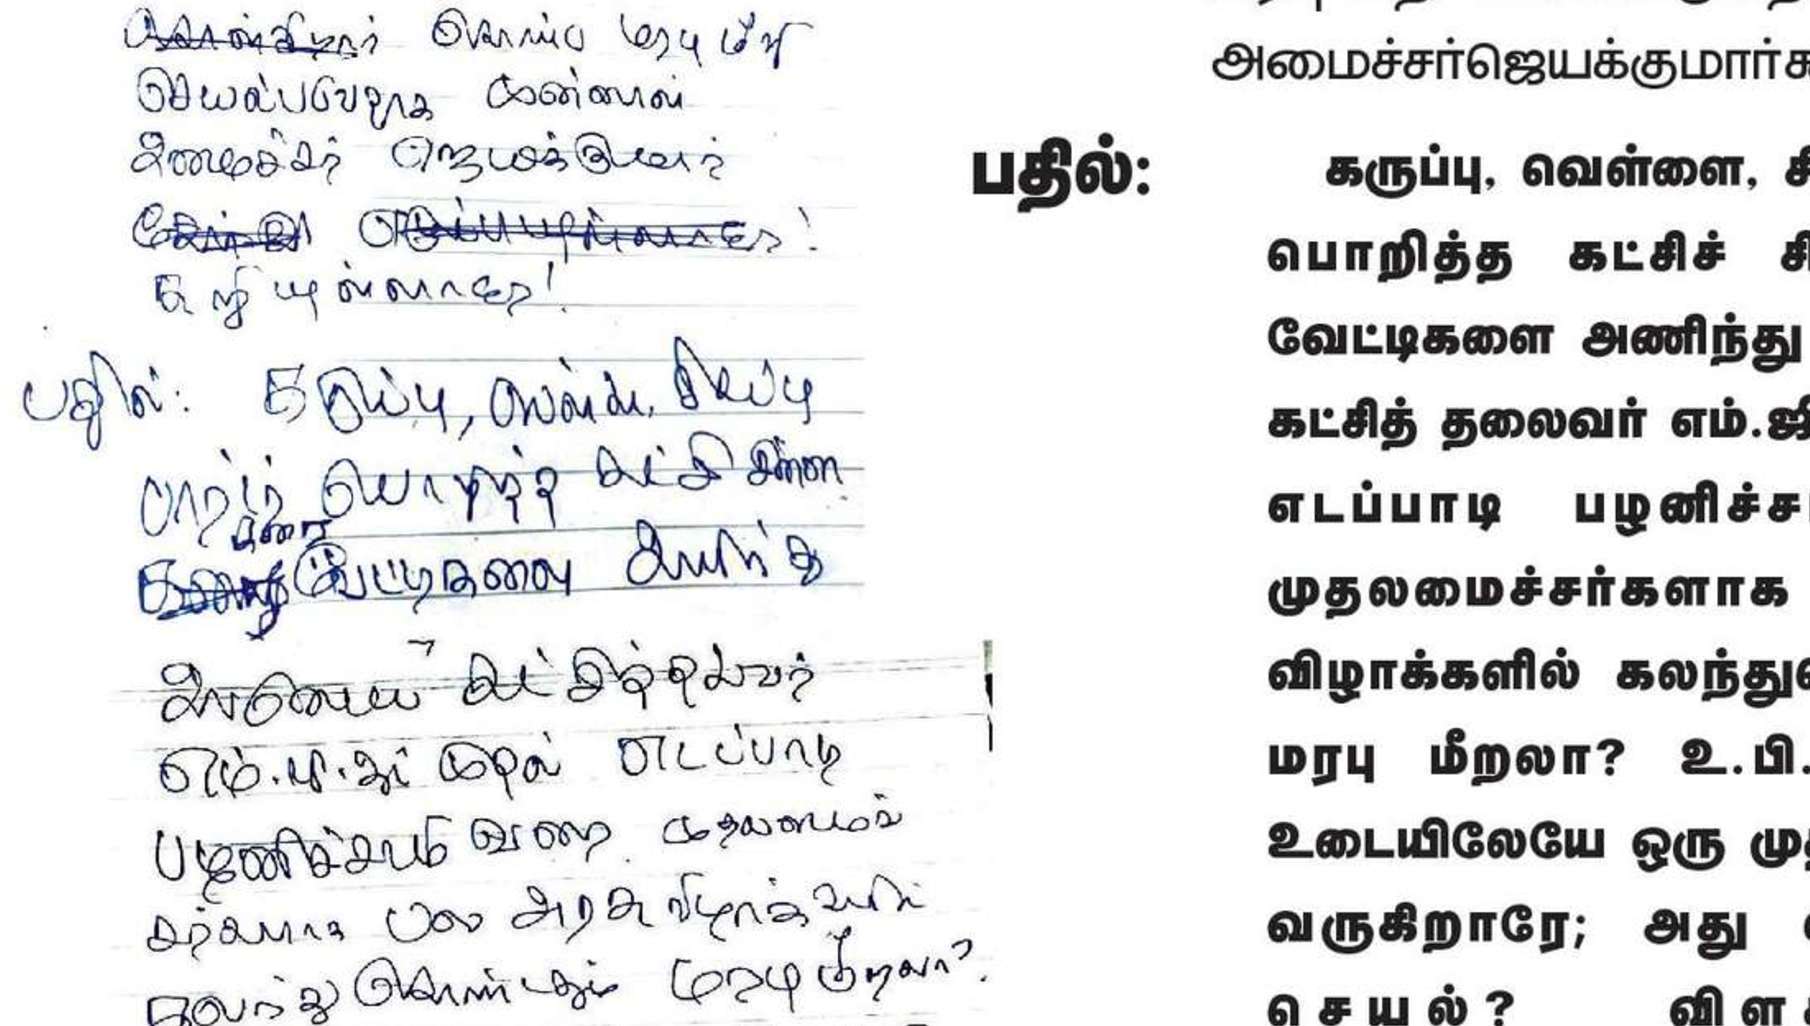 கொய்ப மரபு மீறி
செயல்பட்டதாக முன்னாள்
அமைச்சர் ஜெயக்குமார்
கூறியுள்ளாரே!
பதில்: கருப்பு, வெள்ளை, சிவப்பு
பார்டர் பொறித்த கட்சி சின்ன
கரை வேட்டிகளை அணிந்து
கட்சித்தலைவர்
எம்.ஜி.ஆர் முதல் எடப்பாடி
பழனிச்சாமி வரை முதலமைச்
சர்களாக பல அரசு விழாக்களில்
கலந்து கொண்டதும் மரபு மீறலா?
அமைச்சர்ஜெயக்குமார்க
பதில்: கருப்பு, வெள்ளை, சி
பொறித்த கட்சிச் சி
வேட்டிகளை அணிந்து
கட்சித் தலைவர் எம்.ஜி
எடப்பாடி பழனிச்சா
முதலமைச்சர்களாக
விழாக்களில் கலந்து
மரபு மீறலா? உ.பி.
உடையிலேயே ஒரு மு
வருகிறாரே; அது
செயல்? விள